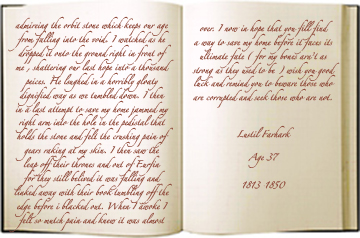 admiring the orbit stone which keeps our age
from falling into the void. I watched as he
dropped it onto the ground right in front of
me , shattering our last hope into a thousand
peices. He laughed in a horribly gloaty
dignified way as we tumbled down. I then
in a last attempt to save my home jammed my
right arm into the hole in the pedistal that
holds the stone and felt the crushing pain of
gears raking at my skin. I then saw the
leap off their thrones and out of Furfin
for they still belived it was falling and
linked away with their book tumbling off the
edge before i blacked out. When I awoke I
felt so mutch pain and knew it was almost
over. I now in hope that you fill find
a way to save my home before it faces its
ultimate fate ( for my bones arn't as
strong as they used to be ) wish you good
luck and remind you to beware those who
are corrupted and seek those who are not.
Lustil Farhark
Age 37
1813-1850